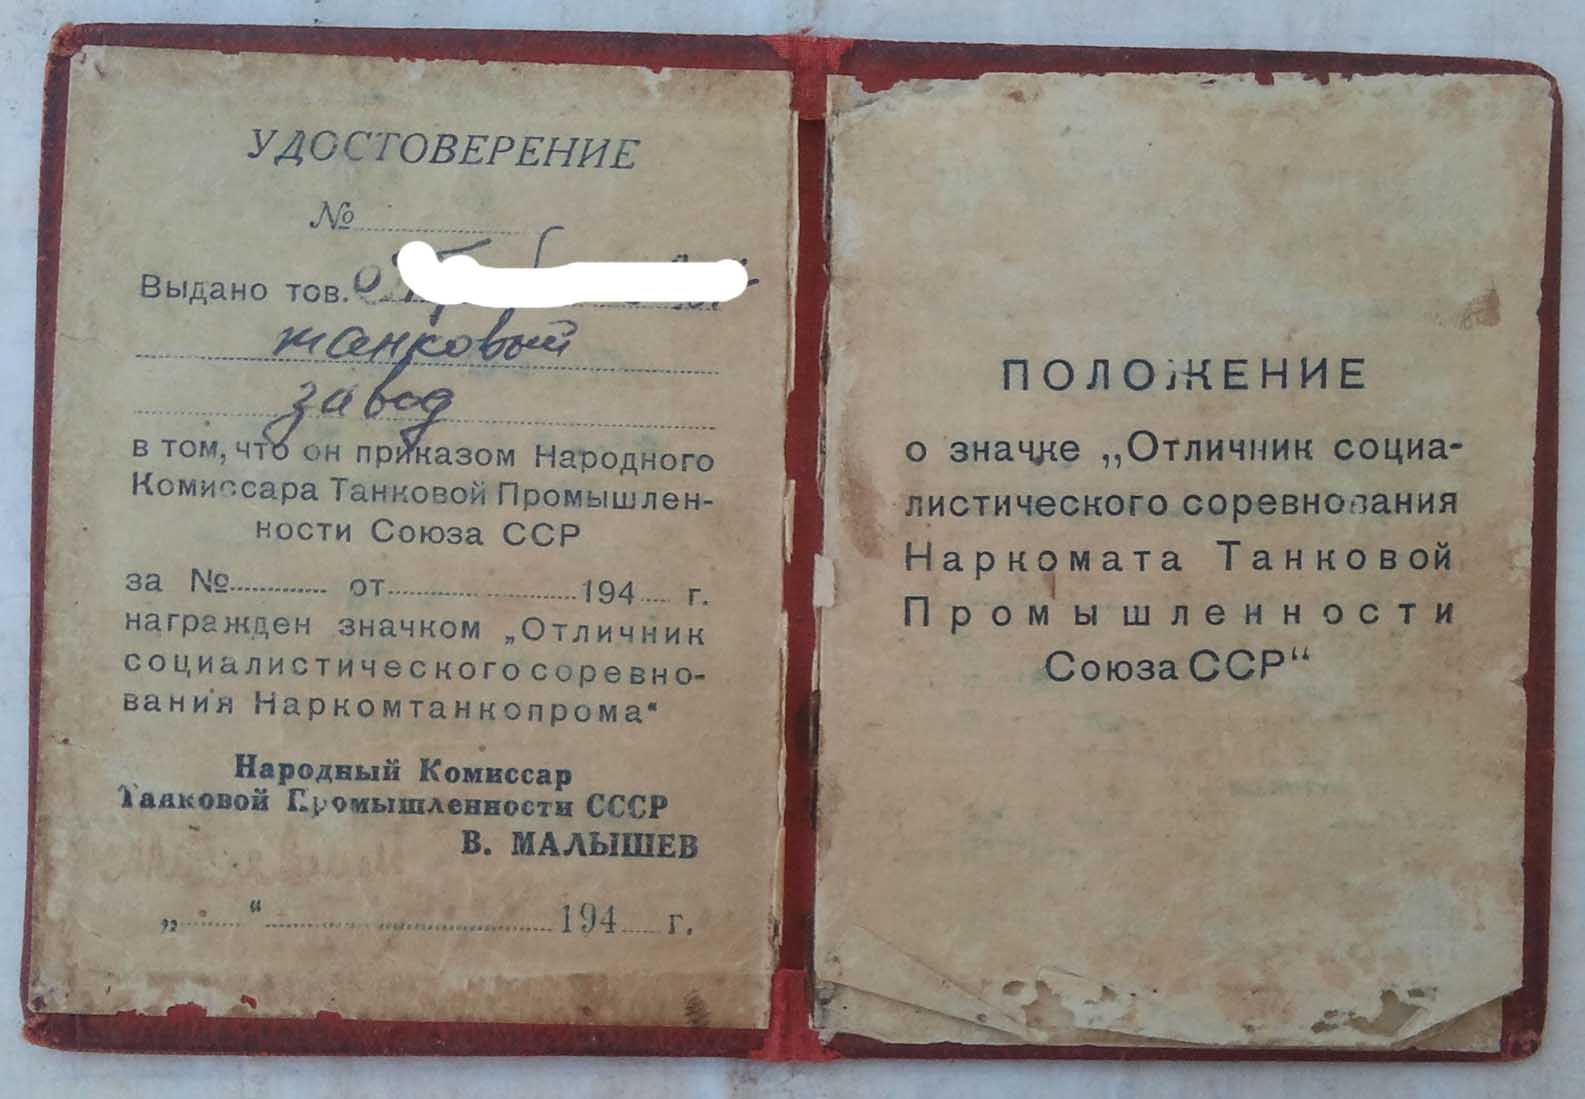 УДОСТОВЕРЕНИЕ
№
Выдано тов.
танковый
завод
в том, что он приказом Народного
Комиссара Танковой Промышлен-
ности Союза ССР
за № от 194 г.
награжден значком „Отличник
социалистического соревно-
вания Наркомтанкопрома“
Народный Комиссар
Танковой Промышленности СССР
В. МАЛЫШЕВ
„ “ 194 г.
ПОЛОЖЕНИЕ
о значке „Отличник социа-
листического соревнования
Наркомата Танковой
Промышленности
Союза ССР“